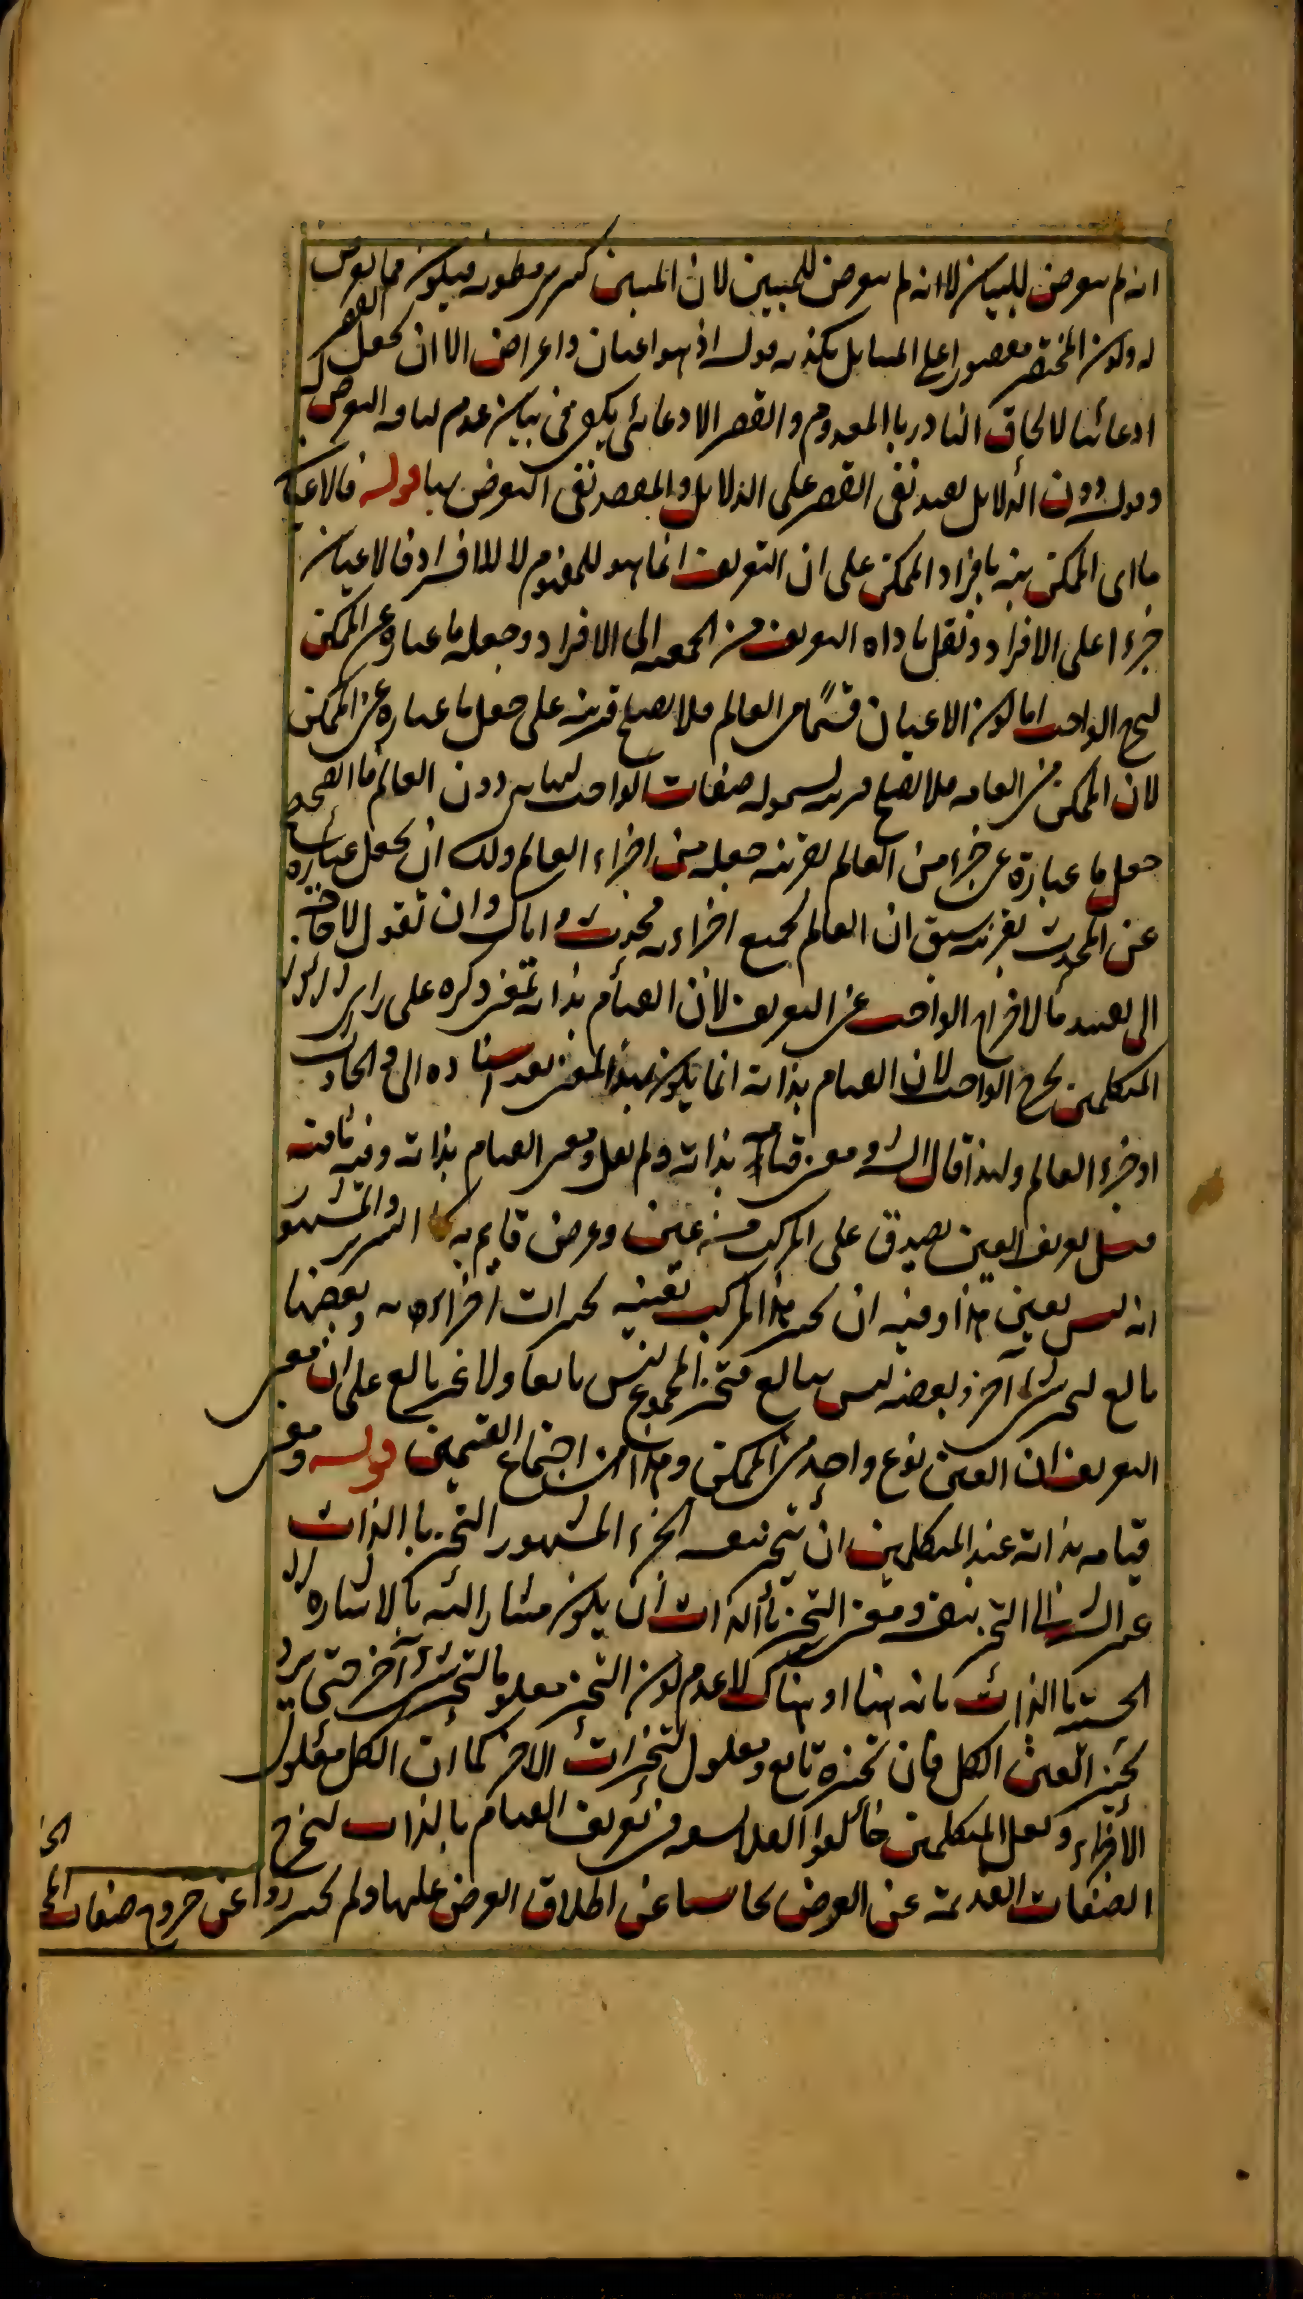 انه لم يتعرض للبيان لا انه لم يتعرض للمبين لان المبين كسرى مطوية فيكون مما تعرض
له وكون المختصر مقصورا على المسائل يكذبه قوله اذ هو اعيان واعراض الا ان يجعل القصر
ادعائيا لالحاق النادر بالمعدوم والقصر الادعائي يكفي في بيان عدم لياقة التعرض له
وقوله دون الدلايل يفيد نفى القصر على الدلايل والمقصد نفى التعرض لها قوله فالاعيان
ما اى الممكن بنه بافراد الممكن على ان التعريف انما هو للمفهوم لا للافراد فالاعيان
جزءا على الافراد ونقل باداه التعريف من الجمعية الى الافراد وجعل ما عبارة عن الممكن
ليخرج الواجب اما كون الاعيان قسما من العالم فلا يصلح قرينه على جعل ما عبارة عن الممكن
لان الممكن من العامه فلا يصلح قرينه لشموله صفات الواجب دون العالم فالصحيح
جعل ما عبارة عن جزء من العالم بقرينه جعله من اجزاء العالم ولك ان تجعل عبارة
عن المحدث بقرينه سبق ان العالم بجميع اجزاءه محدث واياك وان تقول لا حاجة
الى تقييد ما لاخراج الواجب عن التعريف لان القيام بذاته بمعنى ذكره على راى
المتكلمين يخرج الواجب لان القيام بذاته انما يكون بهذا المعنى بعد اسناده الى الحادث
او جزء العالم ولهذا قال الش ومعنى قيامه بذاته ولم يقل ومعنى القيام بذاته وفيه تامل
قيل تعريف العين يصدق على المركب من عين وعرض قايم به كالسرير والمشهور
انه ليس بعين هذا وفيه ان تحيز هذا المركب بعينه تحيزات اجزائه وبعضها
تابع لتحيز شىء آخر وبعضه ليس بتابع فتحيز المجموع ليس تابعا ولا غير تابع على ان معنى
التعريف ان العين نوع واحد من الممكن وهذا من اجتماع القسمين قوله ومعنى
قيامه بذاته عند المتكلمين ان يتحيز بنفسه الجزء المشهور التحيز بالذات
غير الشارح الى التحيز بنفسه ومعنى التحيز بالذات ان يكون مشارا اليه بالاشاره
الحسية بالذات بانه هنا او هناك لا عدم كون التحيز معلولا لتحيز شىء آخر حتى يرد
تحيز العين الكل فان تحيزه تابع ومعلول لتحيزات الاجزاء كما ان الكل معلول
الاجزاء ولعل المتكلمين خالفوا الفلاسفه في تعريف القيام بالذات ليخرج
الصفات القديمة عن العرض تحاشيا عن اطلاق العرض عليها ولم يحترزوا عن خروج صفات